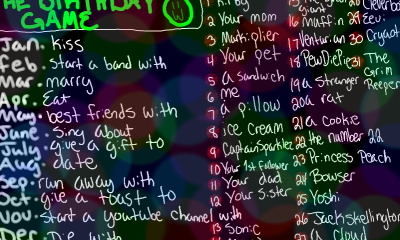 THE BIRTHDAY
GAME
Jan. kiss
Feb. Start a band with
Mar. marry
Apr. Eat
May. best friends with
June. Sing about
July. give a gift to
Aug. date
Sep. run away with
Oct. give a toast to
Nov. Start a youtube channel with
Dec. Die with
1 Kirby
2 Your mom
3 Markiplier
4 Your pet
5 a sandwich
6 me
7 a pillow
8 ice cream
9 CaptainSparklez
10 Your 1st follower
11 Your dad
12 Your sister
13 Sonic
16 Maff.n
17 Venturian
18 PewDiePie
19 a Stranger
20 a rat
21 a cookie
22 the number 22
23 Princess Peach
24 Bowser
25 Yoshi
26 Jack Skellington
a cloud
Cleverbo
29 Sevi
30 Cryaot
31 The
Grim
Reeper